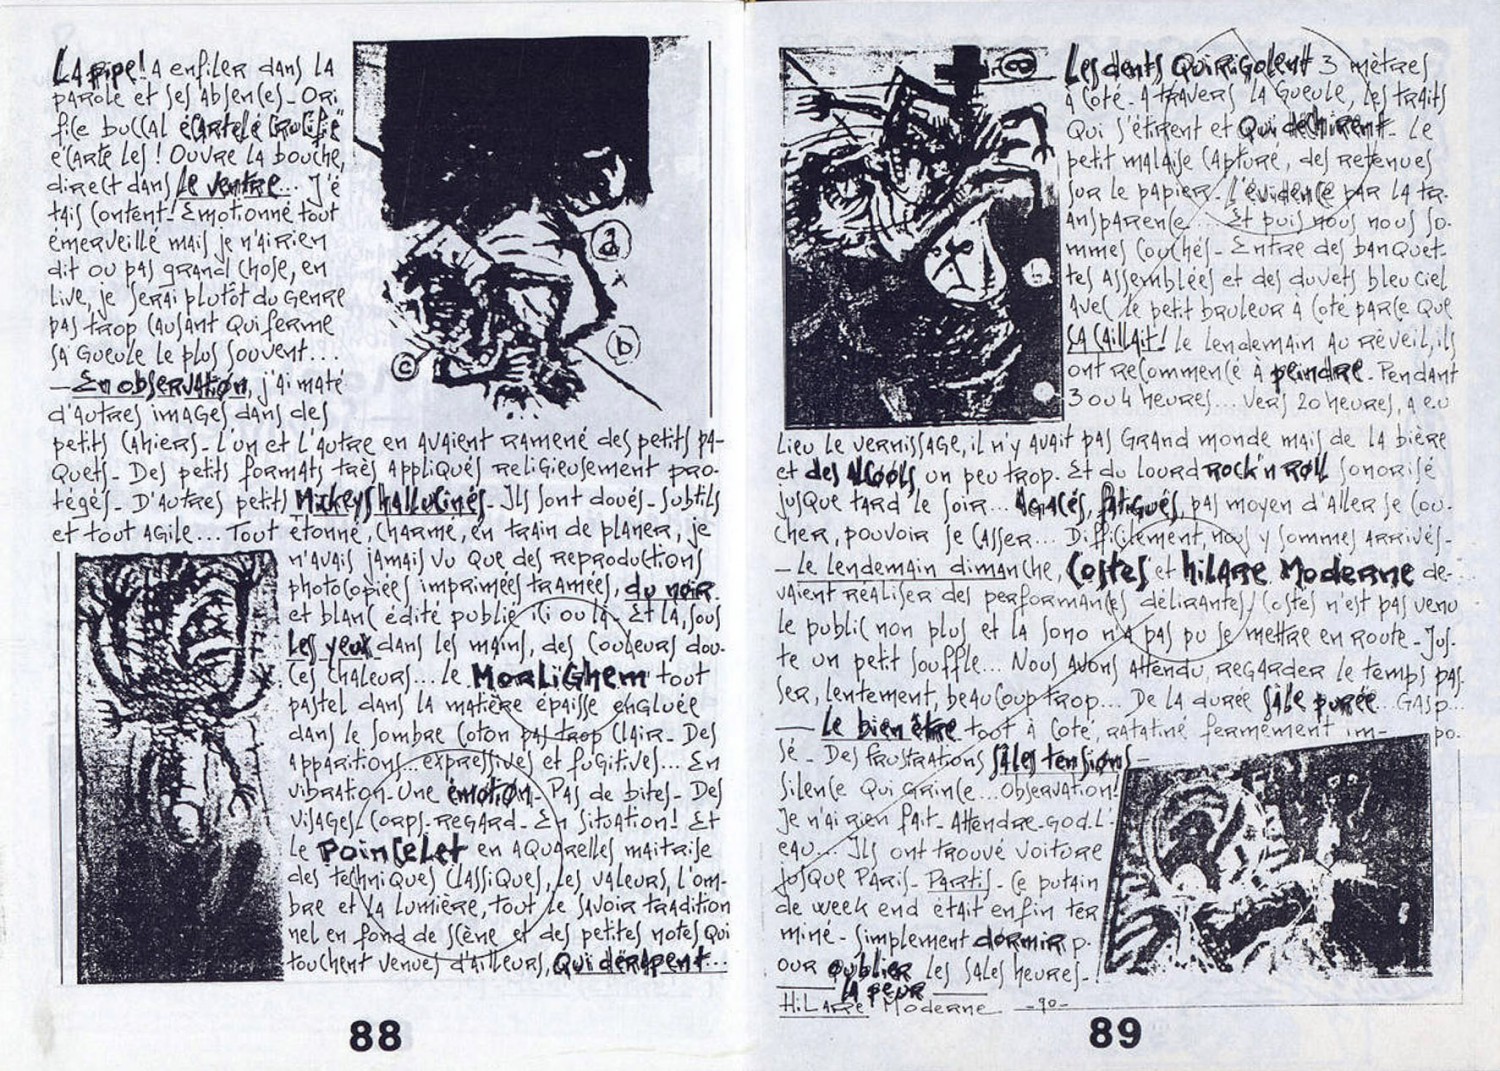 LA pipe! A enfiler dans la
parole et ses absences_ Ori
fice buccal écartelé crucifié
écarte les! Ouvre la bouche,
direct dans le ventre... J'é
tais content_ Emotionné tout
émerveillé mais je n'ai rien
dit ou pas grand chose, en
live, je serai plutôt du genre
pas trop causant qui ferme
sa gueule le plus souvent...
_En observation, j'ai maté
d'autres images dans des
petits cahiers_ L'un et l'autre en avaient ramené des petits pa-
quets_ Des petits formats très appliqués religieusement pro-
tégés_ D'autres petits Mickeys hallucinés_ Ils sont doués_ Subtils
et tout agile... Tout étonné, charmé, en train de planer, je
n'avais jamais vu que des reproductions
photocopiées imprimées tramées, du noir
et blanc édité publié ici ou là_ Et là, sous
les yeux dans les mains, des couleurs dou-
ces chaleurs... Le MORLIGHEM tout
pastel dans la matière épaisse engluée
dans le sombre coton pas trop clair_ Des
apparitions... expressives et fugitives... En
vibration_ Une émotion_ Pas de bites_ Des
visages_ corps_ regard_ En situation! Et
le POINCELET en aquarelles maitrise
des techniques classiques, les valeurs, l'om-
bre et la lumière, tout le savoir tradition
nel en fond de scène et des petites notes qui
touchent venues d'ailleurs, qui dérapent...
a
b
c
88
Les dents qui rigolent 3 mètres
à coté_ A travers la gueule, les traits
qui s'étirent et qui déchirent_ Le
petit malaise capturé, des retenues
sur le papier_ L'évidence par la tr-
ansparence... Et puis nous nous so-
mmes couchés_ Entre des banquet-
tes assemblées et des duvets bleu ciel
avec le petit bruleur à coté parce que
ça caillait! Le lendemain au réveil, ils
ont recommencé à peindre_ Pendant
3 ou 4 heures... Vers 20 heures, a eu
lieu le vernissage, il n'y avait pas grand monde mais de la bière
et des alcools un peu trop. Et du lourd rock'n roll sonorisé
jusque tard le soir... Agacés, fatigués, pas moyen d'aller se cou-
cher, pouvoir se casser... Difficilement, nous y sommes arrivés_
_ Le lendemain dimanche, Costes et Hilare Moderne de-
vaient réaliser des performances délirantes, Costes n'est pas venu
le public non plus et la sono n'a pas pu se mettre en route_ Jus-
te un petit souffle... Nous avons attendu, regarder le temps pas
ser, lentement, beaucoup trop... De la durée sale purée... Gasp...
_ Le bien être tout à coté, ratatiné fermement im- po-
sé_ Des frustrations sales tensions_
Silence qui grince... Observation!
Je n'ai rien fait_ Attendre_ God_ L'
eau... Ils ont trouvé voiture
jusque Paris_ Partis_ Ce putain
de week end était enfin ter
miné_ Simplement dormir p-
our oublier les sales heures_
la peur
Hilare Moderne _90_
b
89